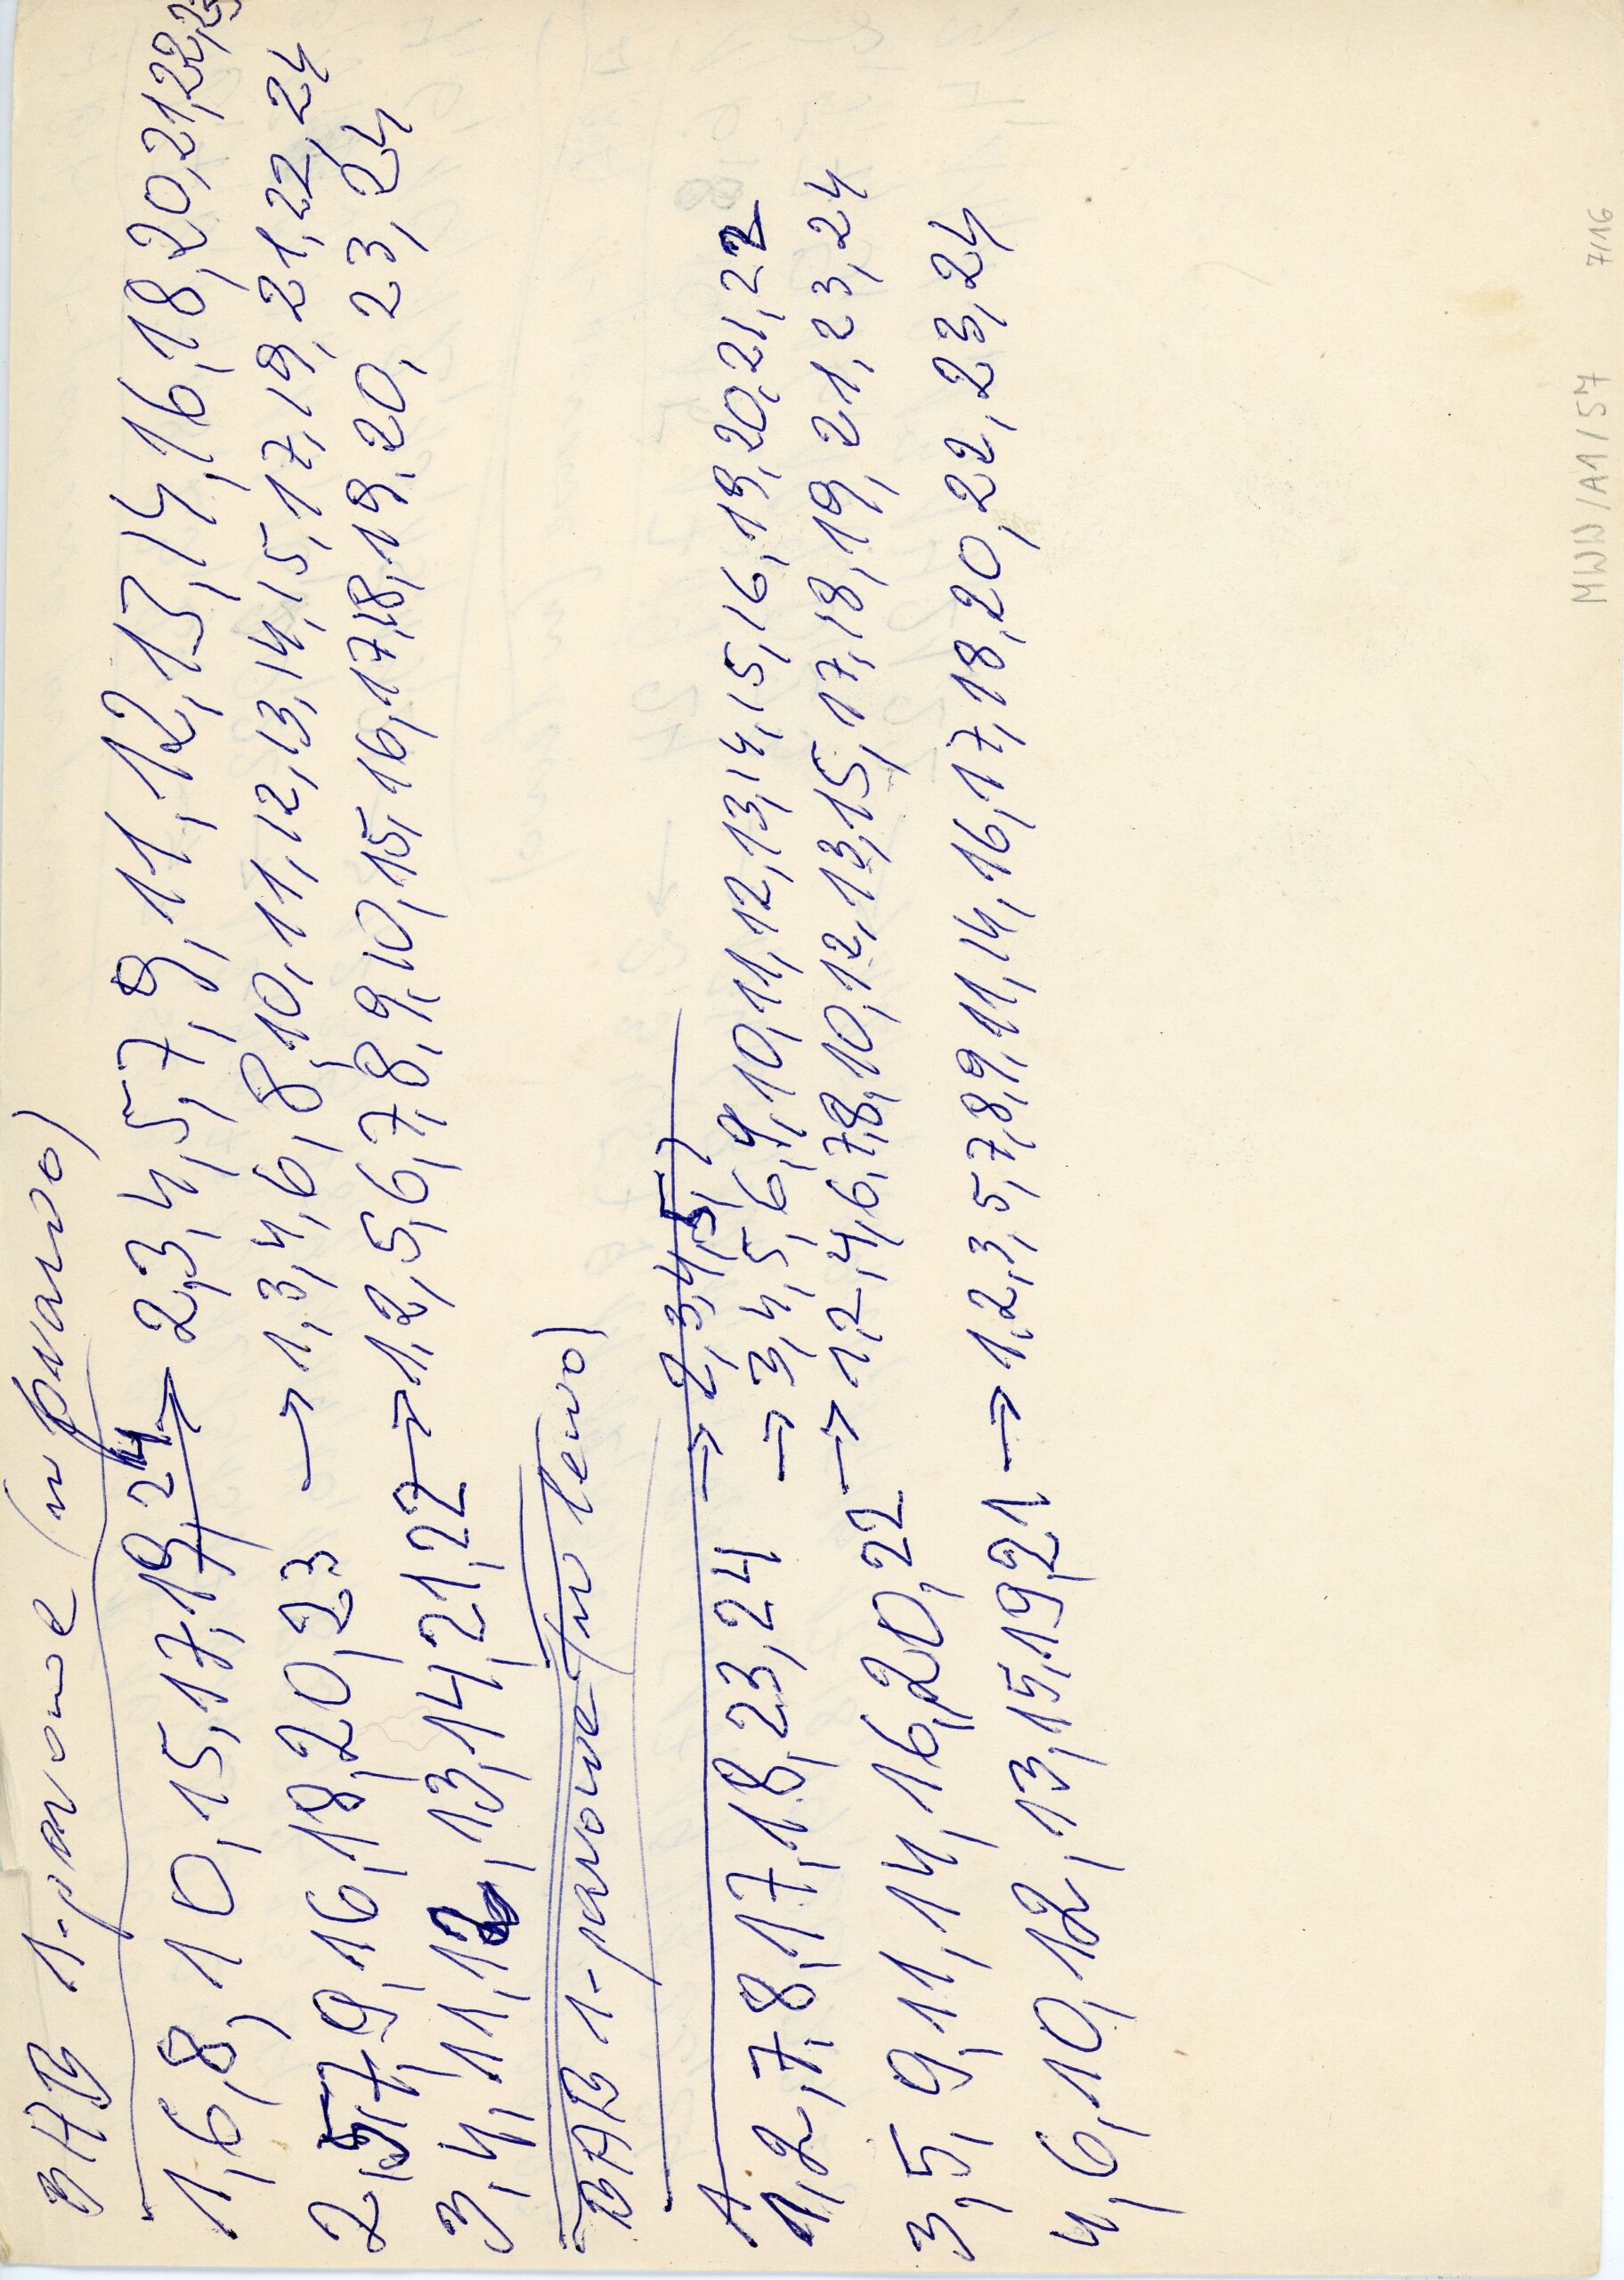 BAB 1-parowe (w prawo)
1,6,8,10,15,17,19,24 → 2,3,4,5,7,9,11,12,13,14,16,18,20,21,22,23
2,5,7,9,16,18,20,23 → 1,3,4,6,8,10,11,12,13,14,15,17,19,21,22,24
3,4,11,12,13,14,21,22 → 1,2,5,6,7,8,9,10,15,16,17,18,19,20,23,24
BAB 1-parowe (w lewo)
1 → 2,3,4,5,7
1,2,7,8,17,18,23,24 → 3,4,5,6,9,10,11,12,13,14,15,16,19,20,21,22
3,5,9,11,14,16,20,22 → 1,2,4,6,7,8,10,12,13,15,17,18,19,21,23,24
4,6,10,12,13,15,19,21 → 1,2,3,5,7,8,9,11,14,16,17,18,20,22,23,24
MWW/A1/57 7/16